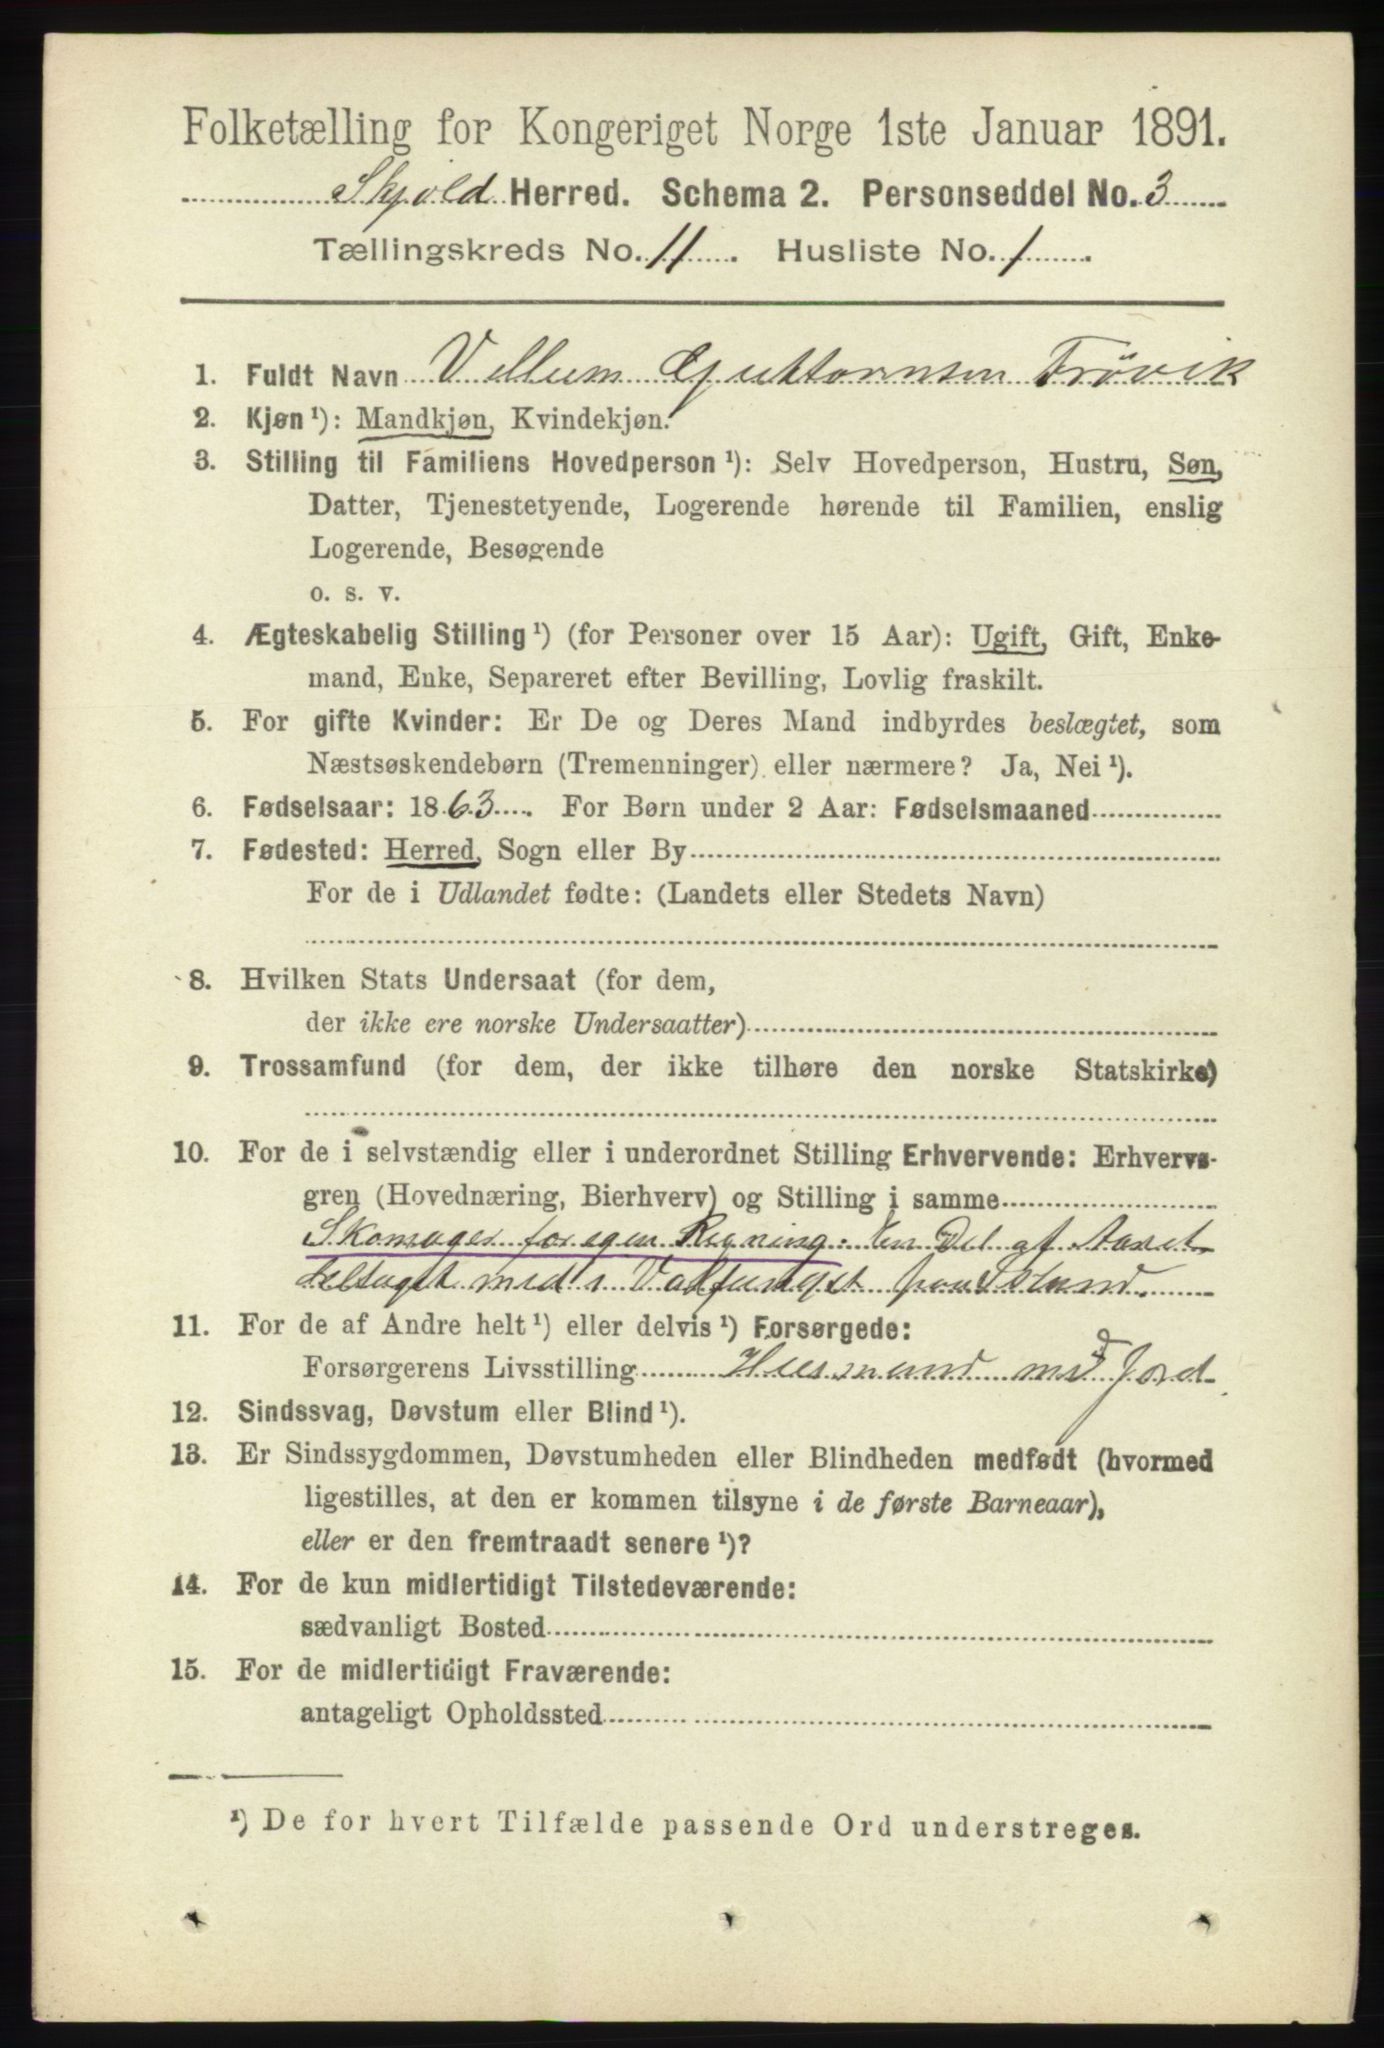 Folketælling for Kongeriget Norge 1ste Januar 1891.
Skjold Herred. Schema 2. Personseddel No. 3
Tællingskreds No. 11. Husliste No. 1.
1. Fuldt Navn Villum Guttormsen Frøvik
2. Kjøn ¹): Mandkjøn, Kvindekjøn.
3. Stilling til Familiens Hovedperson ¹): Selv Hovedperson, Hustru, Søn,
Datter, Tjenestetyende, Logerende hørende til Familien, enslig
Logerende, Besøgende
o. s. v.
4. Ægteskabelig Stilling ¹) (for Personer over 15 Aar): Ugift, Gift, Enke-
mand, Enke, Separeret efter Bevilling, Lovlig fraskilt.
5. For gifte Kvinder: Er De og Deres Mand indbyrdes beslægtet, som
Næstsøskendebørn (Tremenninger) eller nærmere? Ja, Nei ¹).
6. Fødselsaar: 1863. For Børn under 2 Aar: Fødselsmaaned
7. Fødested: Herred, Sogn eller By
For de i Udlandet fødte: (Landets eller Stedets Navn)
8. Hvilken Stats Undersaat (for dem,
der ikke ere norske Undersaatter)
9. Trossamfund (for dem, der ikke tilhøre den norske Statskirke)
10. For de i selvstændig eller i underordnet Stilling Erhvervende: Erhvervs-
gren (Hovednæring, Bierhverv) og Stilling i samme
Skomager for egen Regning. En Del af Aaret
deltaget med i Valfangst paa Island.
11. For de af Andre helt ¹) eller delvis ¹) Forsørgede:
Forsørgerens Livsstilling Husmand med Jord
12. Sindssvag, Døvstum eller Blind ¹).
13. Er Sindssygdommen, Døvstumheden eller Blindheden medfødt (hvormed
ligestilles, at den er kommen tilsyne i de første Barneaar),
eller er den fremtraadt senere ¹)?
14. For de kun midlertidigt Tilstedeværende:
sædvanligt Bosted
15. For de midlertidigt Fraværende:
antageligt Opholdssted
¹) De for hvert Tilfælde passende Ord understreges.